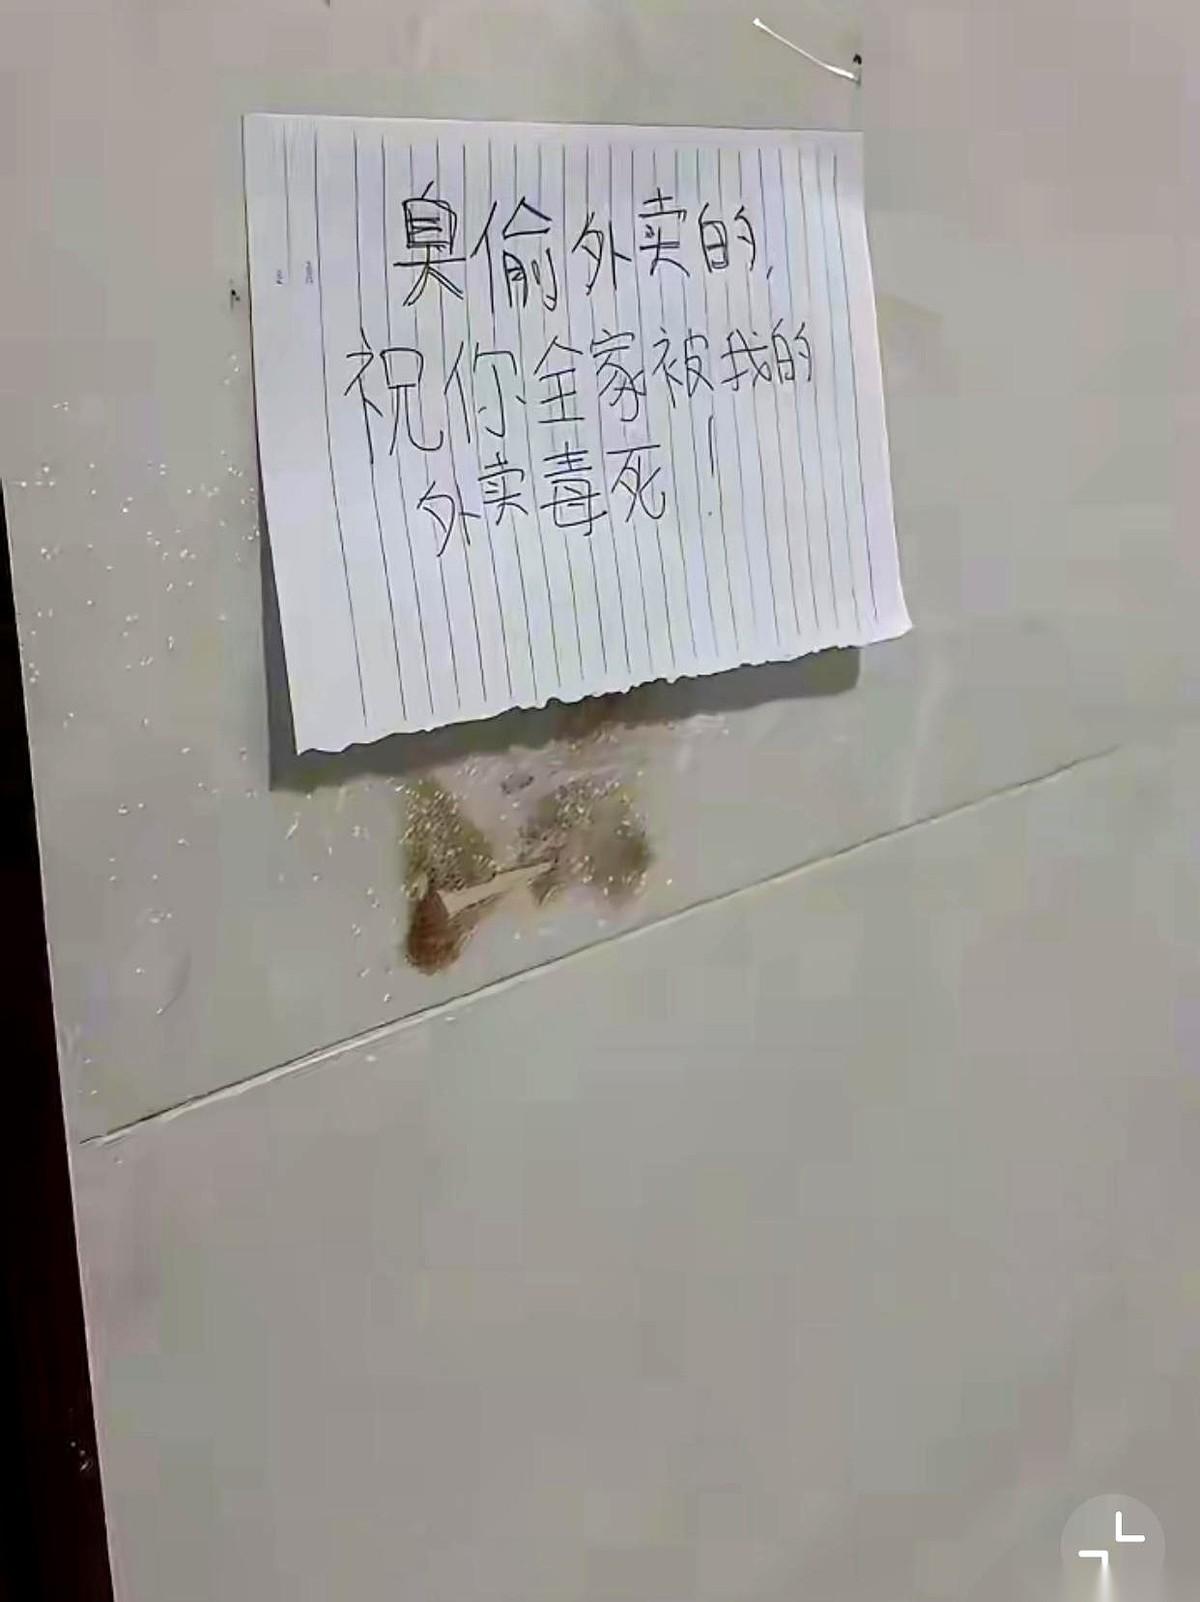 臭偷外卖的,
祝你全家被我的
外卖毒死!